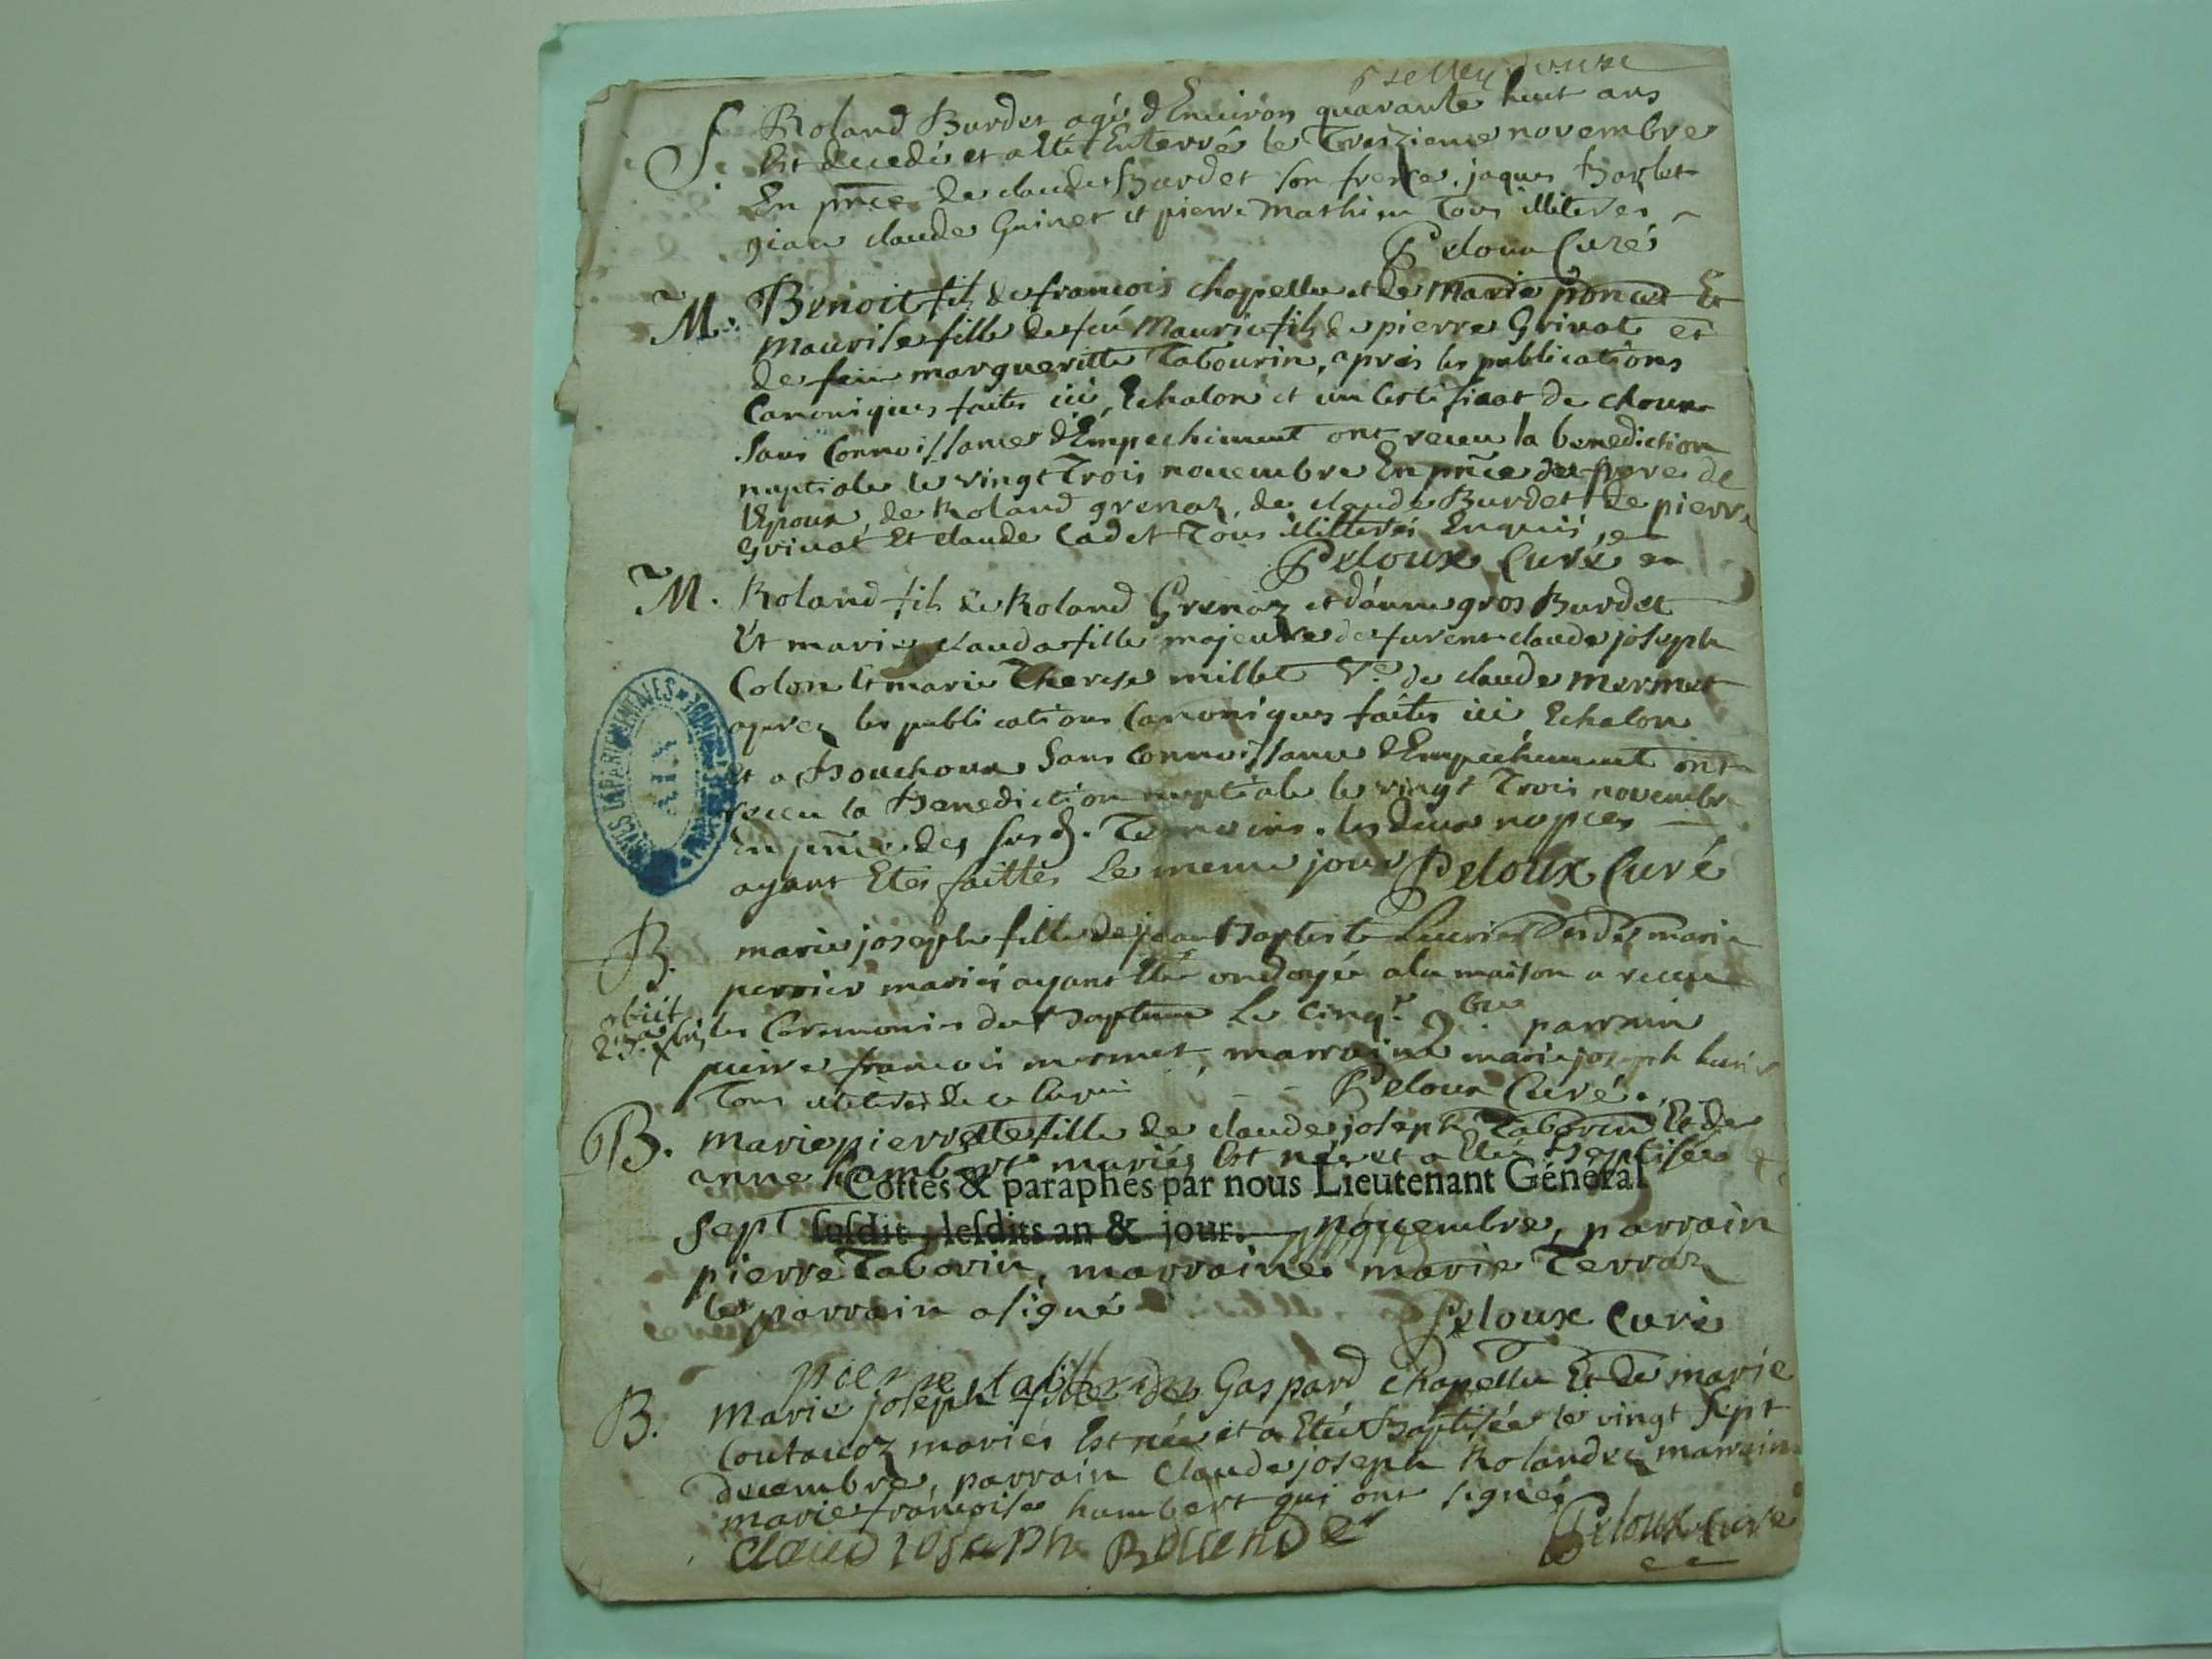 S. Roland Burdet agé d'Environ quarante huit ans
Est decedé et a Eté Enterré le Treizieme novembre
En pnce de claude Burdet son frere, jaques Barlet
jean claude Guinet et pierre Mathieu Tous illiteres
Peloux Curé
M. Benoit fils de francois chapellu et de Marie poncet Et
Maurise fille de feu Maurice fils de pierre Grinat et
de feüe margueritte Tabourin, aprés les publications
Canoniques faites ici, Echalon et un Certificat de choux
Sans Connoissance d'Empechiment ont receu la benediction
nuptiale le vingt Trois novembre En pnce du frere de
l'Epoux, de Roland grenaz, de claude Burdet de pierre
Grinat Et claude Cadet Tous illitterés Enquis
Peloux Curé
M. Roland fils de Roland Grenaz et d'anne gros Burdet
Et marie clauda fille majeure de furent claude joseph
Colon Et marie Therese millet Ve de claude Mermet
aprez les publications Canoniques faites ici, Echalon
Et a Bouchoux Sans Connoissance d'Empechement ont
receu la Benediction nuptiale le vingt Trois novembre
En pnce des susd. Temoins. les deux nopces
ayant Etés faittes Le meme jour Peloux Curé
ARCHIVES DEPARTEMENTALES
AIN
B. marie joseph fille de jean Baptiste Luvrier Et de marie
perrier mariés ayant Eté ondoyée a la maison a receu
obiit
23 a xbris
les Ceremonies du Bapteme Le Cinq. 9bre parrain
pierre francois mermet, marraine marie joseph
Tous illiterés de ce Enquis Peloux Curé.
B. Marie pierrette fille de claude joseph Taborin Et de
anne humbert mariés Est née et a Eté Baptisée le
Cottés & paraphés par nous Lieutenant Général
sept susdit, lesdits an & jour. novembre, parrain
pierre Taborin, marraine marie Terraz
le parrain a signé Peloux Curé
pierre taborin
B. Marie joseph fille de Gaspard Chapellu Et de marie
Coutavoz mariés Est née et a Eté Baptisée le vingt Sept
decembre, parrain Claude joseph Rolandez marraine
marie francoise humbert qui ont signés
Claud Joseph Rollande Peloux Curé